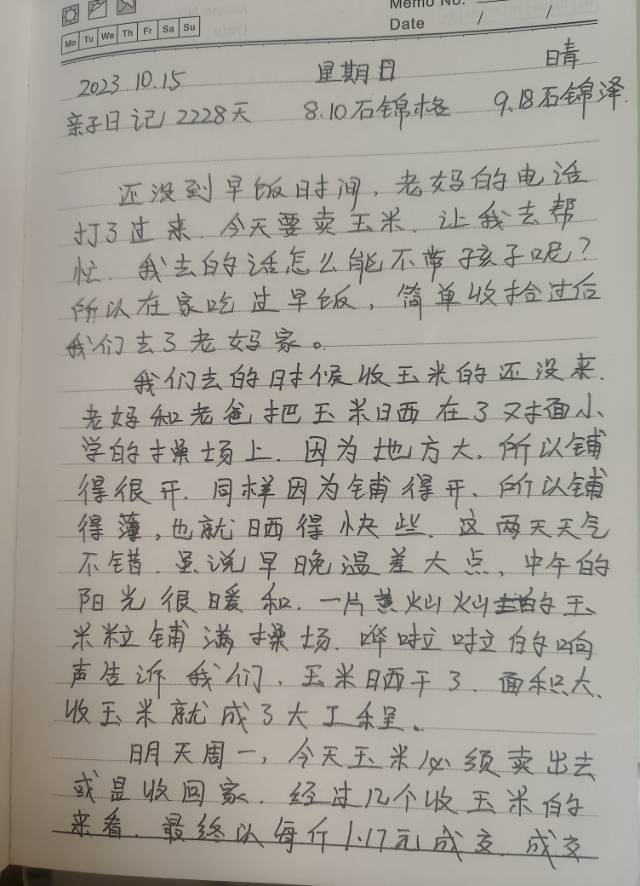 Memo No.
Mo Tu We Th Fr Sa Su
Date / /
2023 10.15 星期日 晴
亲子日记2228天 8.10石锦格 9.18石锦泽
还没到早饭时间，老妈的电话
打了过来.今天要卖玉米.让我去帮
忙.我去的话怎么能不带孩子呢？
所以在家吃过早饭，简单收拾过后
我们去了老妈家。
我们去的时候收玉米的还没来.
老妈和老爸把玉米晒在了对面小
学的操场上.因为地方大.所以铺
得很开.同样因为铺得开、所以铺
得薄，也就晒得快些.这两天天气
不错.虽说早晚温差大点，中午的
阳光很暖和.一片黄灿灿的玉
米粒铺满操场.哗啦啦的响
声告诉我们、玉米晒干了.面积大、
收玉米就成了大工程。
明天周一，今天玉米必须卖出去
或是收回家.经过几个收玉米的
来看.最终以每斤1.17元成交.成交